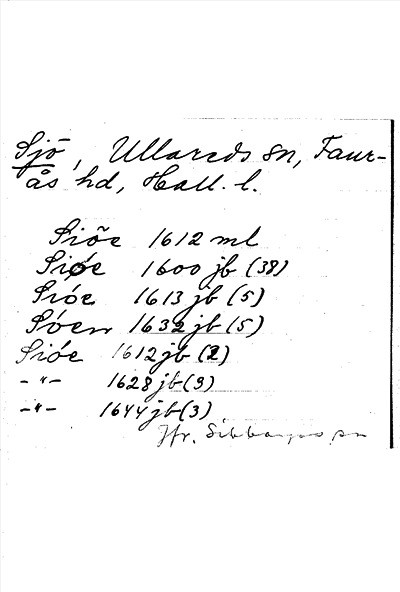 Sjö, Ullareds sn, Faur-
ås hd, Hall. l.
Siöe 1612 ml
Siøe 1600 jb (38)
Sióe 1613 jb (5)
Sóen 1632 jb (5)
Sióe 1612 jb (2)
-"- 1628 jb (3)
-"- 1644 jb (3)
Jfr. Sibbarps sn